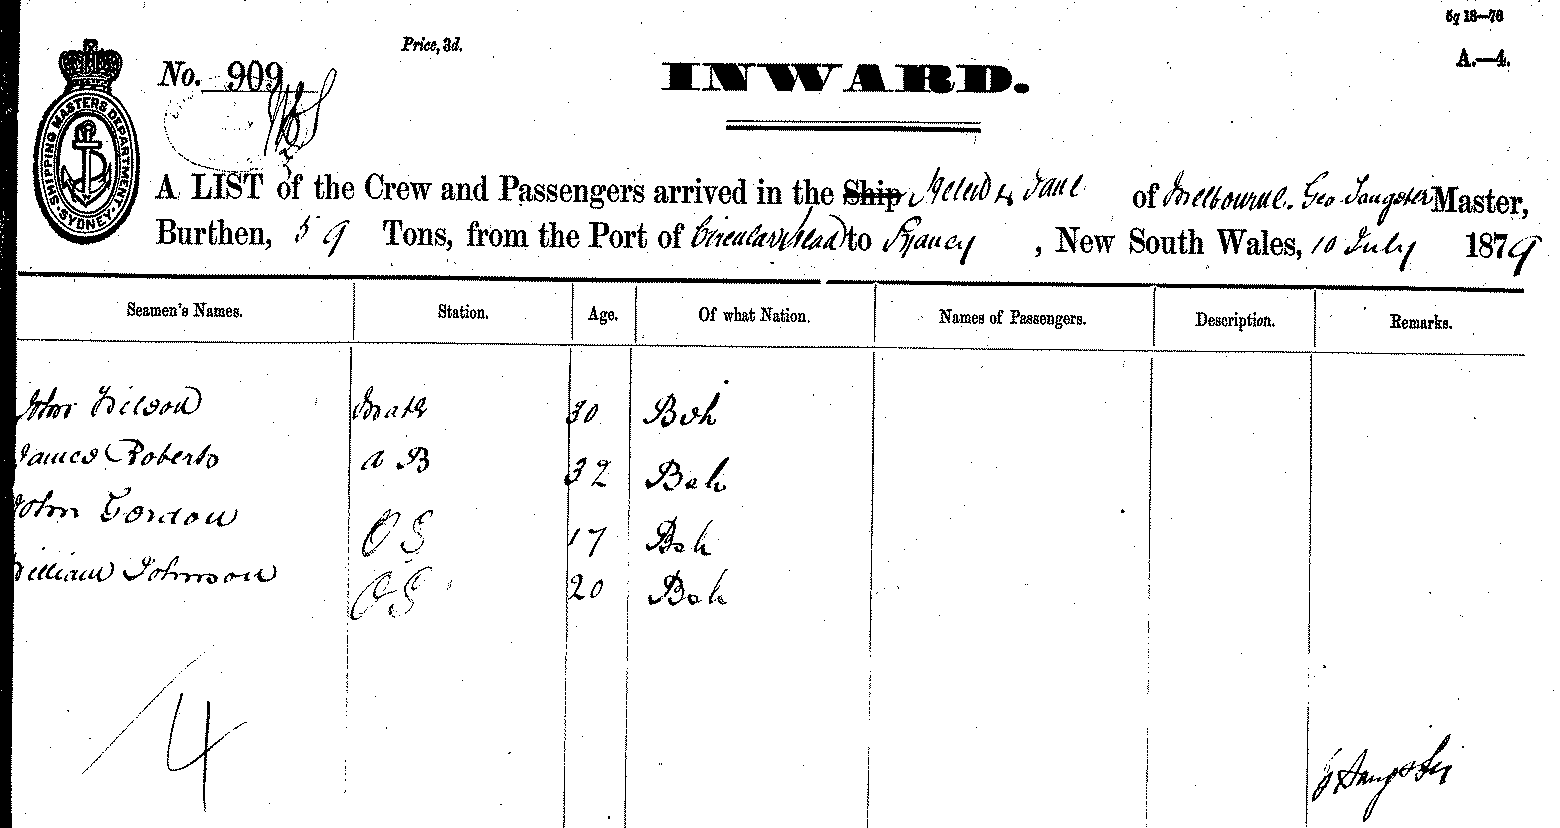 6g 18—76
Price, 3d.
A.—4.
No. 909
INWARD.
SHIPPING MASTERS DEPARTMENT
SYDNEY
A LIST of the Crew and Passengers arrived in the Ship Helen & Jane of Melbourne. Geo Sangster Master,
Burthen, 59 Tons, from the Port of Circular Head to Sydney, New South Wales, 10 July 1879
Seamen's Names. Station. Age. Of what Nation. Names of Passengers. Description. Remarks.
John Wilson Mate 30
James Roberts A B 32
John Gordon O S 17
William Johnson O S 20
4
G Sangster